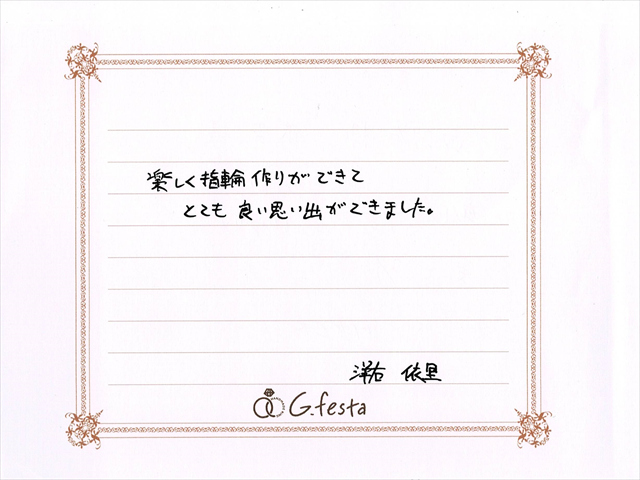 楽しく指輪作りができて
とても良い思い出ができました。
洋右 依里
G.festa